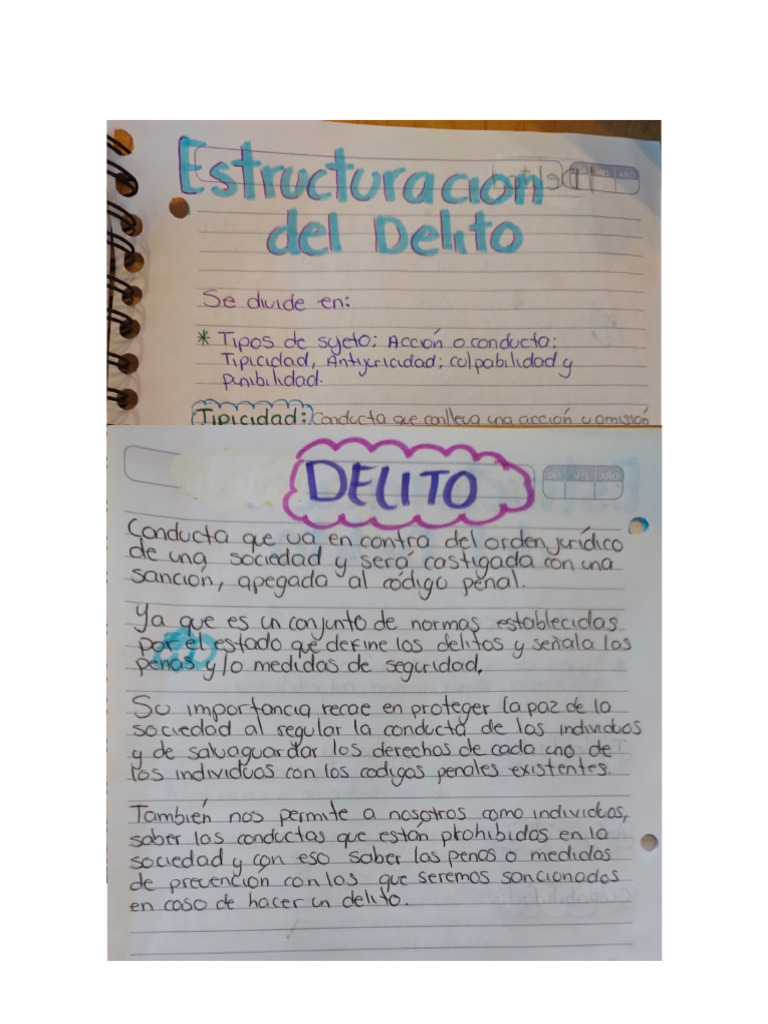 Estructuracion
del Delito
DIA MES AÑO
Se divide en:
* Tipos de sujeto; Acción o conducta;
Tipicidad, Antijuricidad; culpabilidad y
punibilidad.
Tipicidad: Conducta que conlleva una acción u omisión
DELITO
DIA MES AÑO
Conducta que va en contra del orden jurídico
de una sociedad y será castigada con una
sanción, apegada al código penal.
Ya que es un conjunto de normas establecidas
por el estado que define los delitos y señala los
penas y/o medidas de seguridad.
Su importancia recae en proteger la paz de la
sociedad al regular la conducta de los individuos
y de salvaguardar los derechos de cada uno de
los individuos con los codigos penales existentes.
También nos permite a nosotros como individuos,
saber las conductas que están prohibidas en la
sociedad y con eso saber las penas o medidas
de prevención con los que seremos sancionados
en caso de hacer un delito.